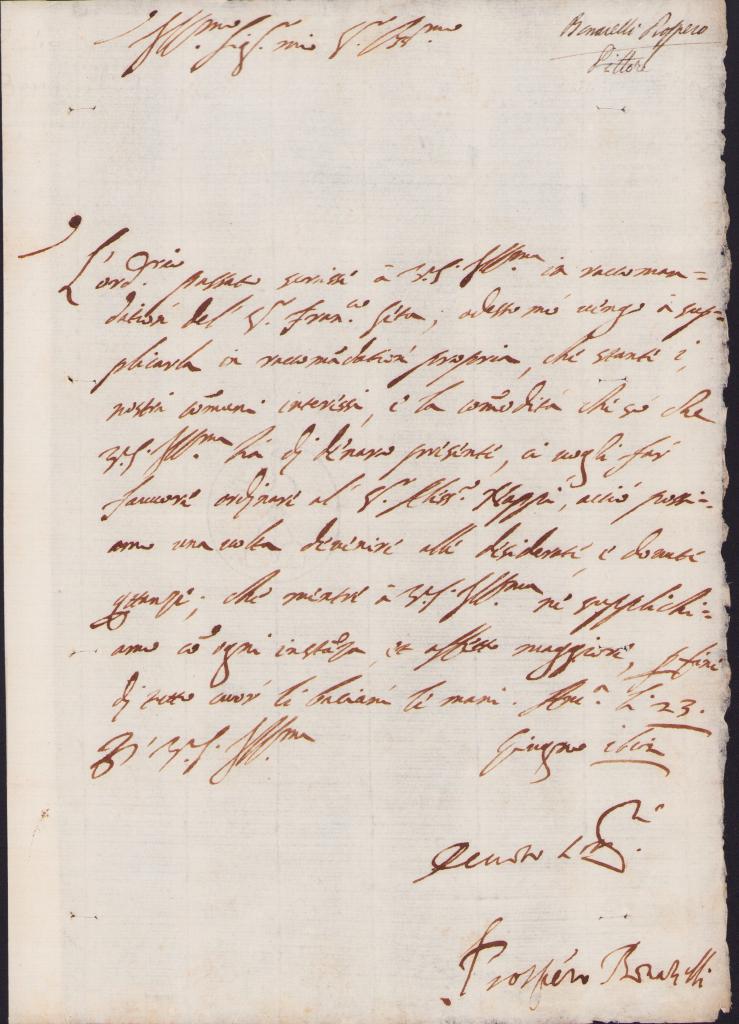 Ill.mo Sig.r mio S.r Oss.mo
Bonarelli Prospero
Pittore
L'ord.rio passato scrissi à V.S. Ill.ma in raccoman=
dationi del S.r Fran.co ; adesso mè vengo à sup=
plicarla in raccomãdationi propria, chè stanti i
nostri cõmuni interessi, è la comõdità chè sò che
V.S. Ill.ma hà dj dènaro prèsènte, ci vogli far
favvorè ordjnarè al S.r Nappi, acciò possi=
amo una volta dèvènirè allè dèsidèratè, è dovutè
; chè mèntrè à V.S. Ill.ma nè supplichi=
amo cõ ogni instãza, et affètto maggiorè,
dj tutto cuor li baciam lè mani. li 23.
Di V.S. Ill.ma
Giugno
Prospèro Bonarelli